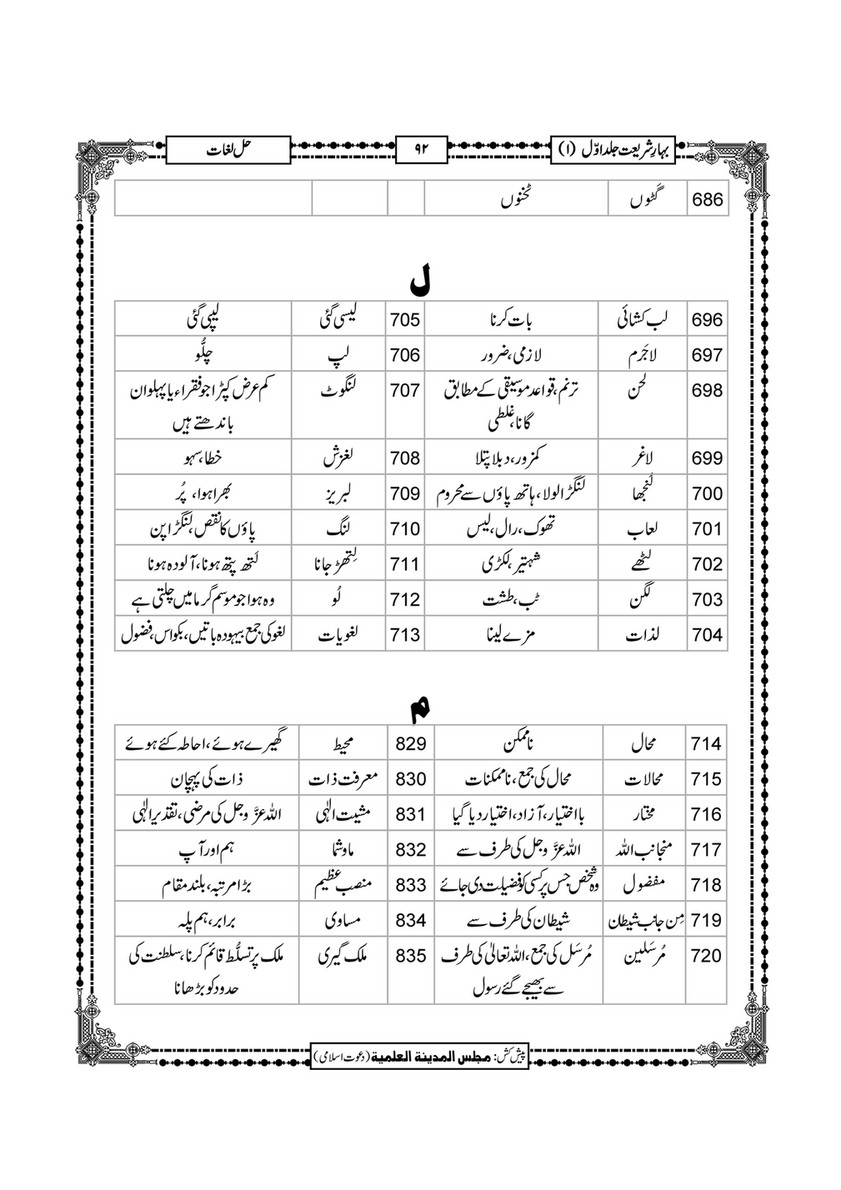 بہارِشریعت جلد اوّل (۱) ۹۲ حل لغات
686 گٹوں ٹخنوں
ل
696 لب کشائی بات کرنا 705 لیسی گئی لیپی گئی
697 لاجَرم لازمی،ضرور 706 لپ چلُّو
698 لحن ترنم،قواعد موسیقی کے مطابق 707 لنگوٹ کم عرض کپڑا جو فقراء یا پہلوان
گانا،غلطی باندھتے ہیں
699 لاغر کمزور،دبلا پتلا 708 لغزش خطا،سہو
700 لُنجھا لنگڑا لولا،ہاتھ پاؤں سے محروم 709 لبریز بھرا ہوا، پُر
701 لعاب تھوک،رال،لیس 710 لنگ پاؤں کا نقص،لنگڑا پن
702 لٹھے شہتیر،لکڑی 711 لِتھڑ جانا لَتھ پتھ ہونا،آلودہ ہونا
703 لگن ٹب،طشت 712 لُو وہ ہوا جو موسم گرما میں چلتی ہے
704 لذات مزے لینا 713 لغویات لغو کی جمع بیہودہ باتیں،بکواس،فضول
م
714 محال ناممکن 829 محیط گھیرے ہوئے،احاطہ کئے ہوئے
715 محالات محال کی جمع،ناممکنات 830 معرفت ذات ذات کی پہچان
716 مختار بااختیار،آزاد،اختیار دیا گیا 831 مشیت الٰہی اللہ عزَّ وجل کی مرضی،تقدیر الٰہی
717 منجانب اللہ اللہ عزَّ وجل کی طرف سے 832 ماوشما ہم اور آپ
718 مفضول وہ شخص جس پر کسی کو فضیلت دی جائے 833 منصب عظیم بڑا مرتبہ،بلند مقام
719 مِن جانب شیطان شیطان کی طرف سے 834 مساوی برابر،ہم پلہ
720 مُرسَلین مُرسَل کی جمع،اللہ تعالیٰ کی طرف 835 ملک گیری ملک پر تسلُّط قائم کرنا،سلطنت کی
سے بھیجے گئے رسول حدود کو بڑھانا
پیش کش: مجلس المدینة العلمیة (دعوت اسلامی)